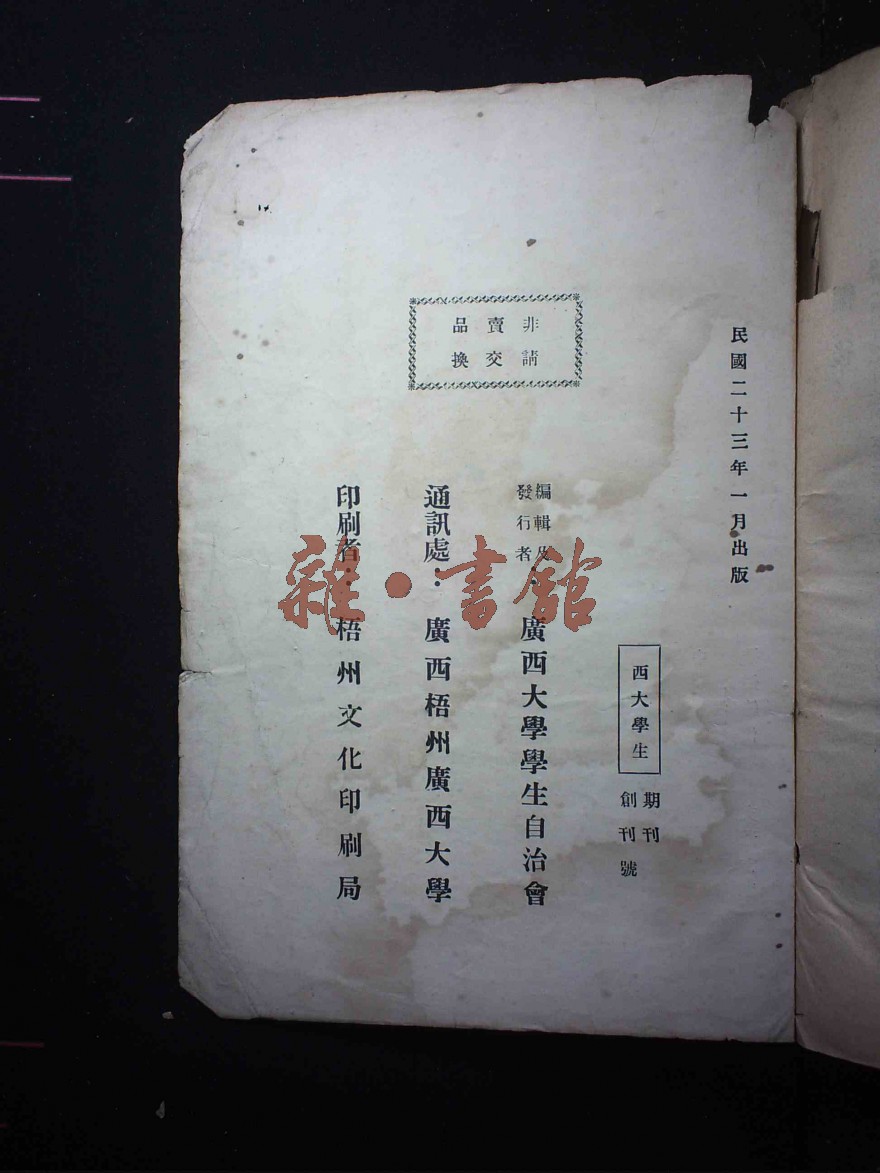 民國二十三年一月出版
西大學生
期刊
創刊號
編輯及
發行者：廣西大學學生自治會
通訊處：廣西梧州廣西大學
印刷者：梧州文化印刷局
非賣品
請交換
雜·書館